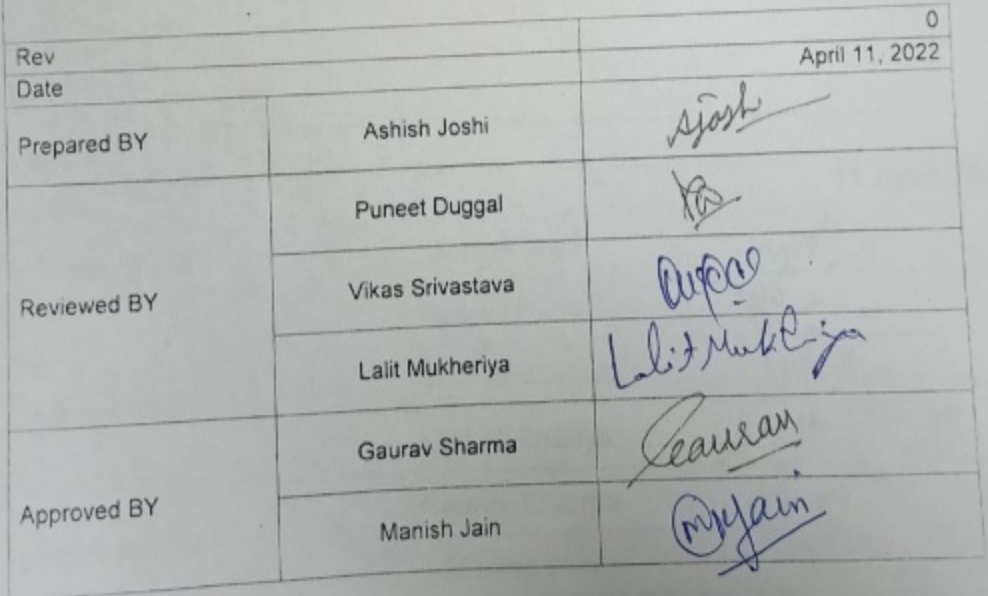 Rev 0
Date April 11, 2022
Prepared BY Ashish Joshi Ajosh
Reviewed BY Puneet Duggal
Vikas Srivastava
Lalit Mukheriya Lalit Mukheriya
Approved BY Gaurav Sharma Gaurav
Manish Jain MJain